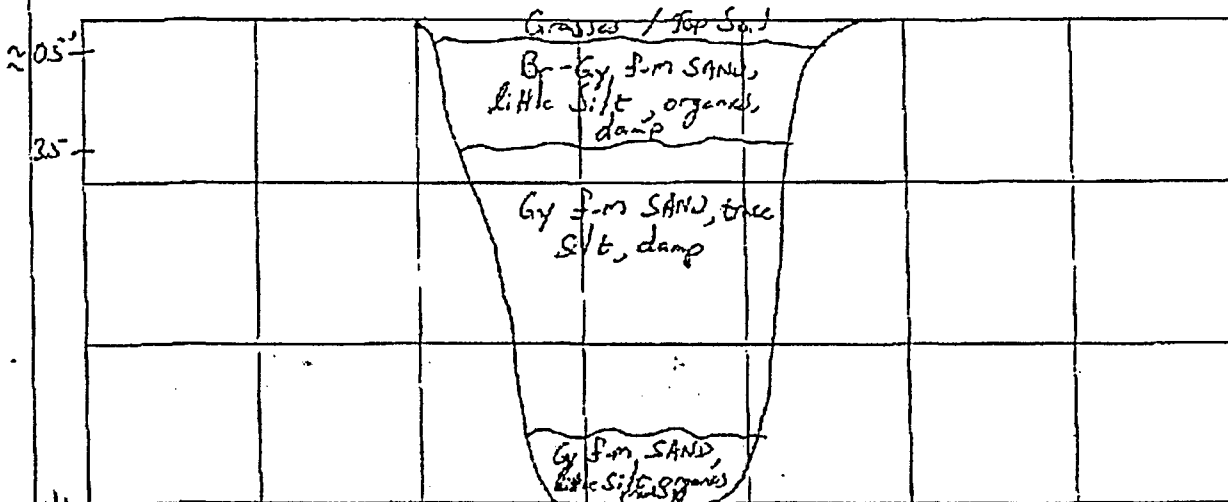 Grasses / Top Soil
≈ 0.5'
Br-Gy f-m SAND,
little Silt, organics,
damp
3.5
Gy f-m SAND, trace
Silt, damp
Gy f-m SAND,
little Silt, organics